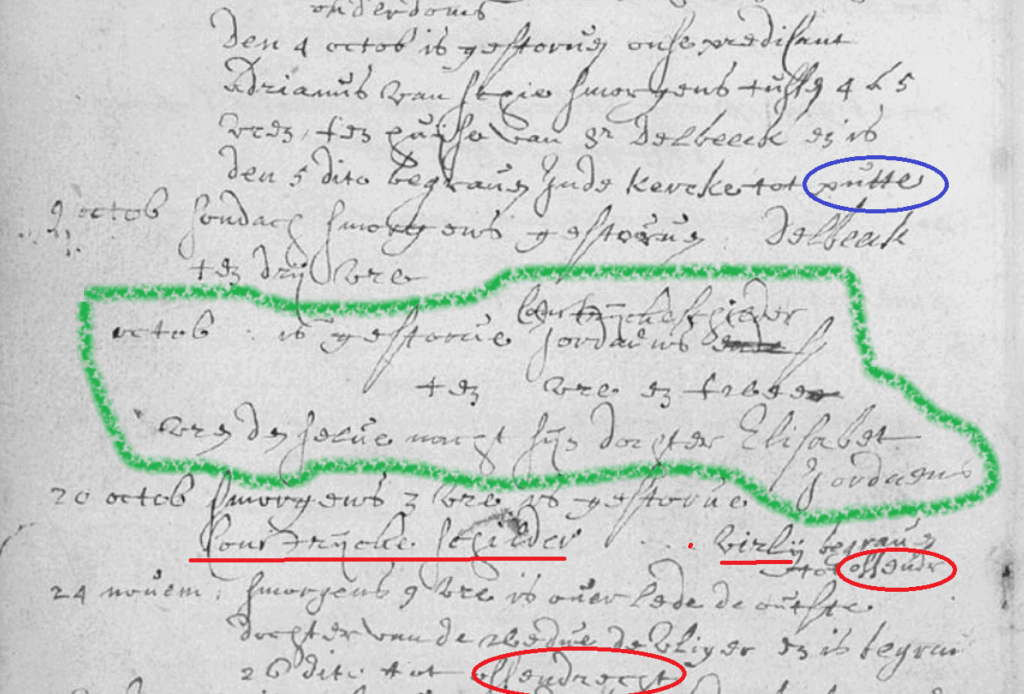 onderdoms
Den 4 octob is gestorven onse predikant
Adrianus van smorgens tussen 4 & 5
vren, ten huise van Sr Delbeeck en is
den 5 dito begraven Inde kercke tot putte
9 octob sondach smorgens gestorven Delbeeck
ten drij vre
schieder
octob is gestorve Jordaens
ten vre en twee
vren den selve nacht sijn dochter Elisabet
Jordaens
20 octob smorgens 3 vre is gestorve
schilder begraven
tot ossendr
24 novem smorgens 9 vre is over lede de outste
dochter van de wedue de Vliger en is begrav
26 dito tot ossendrecht